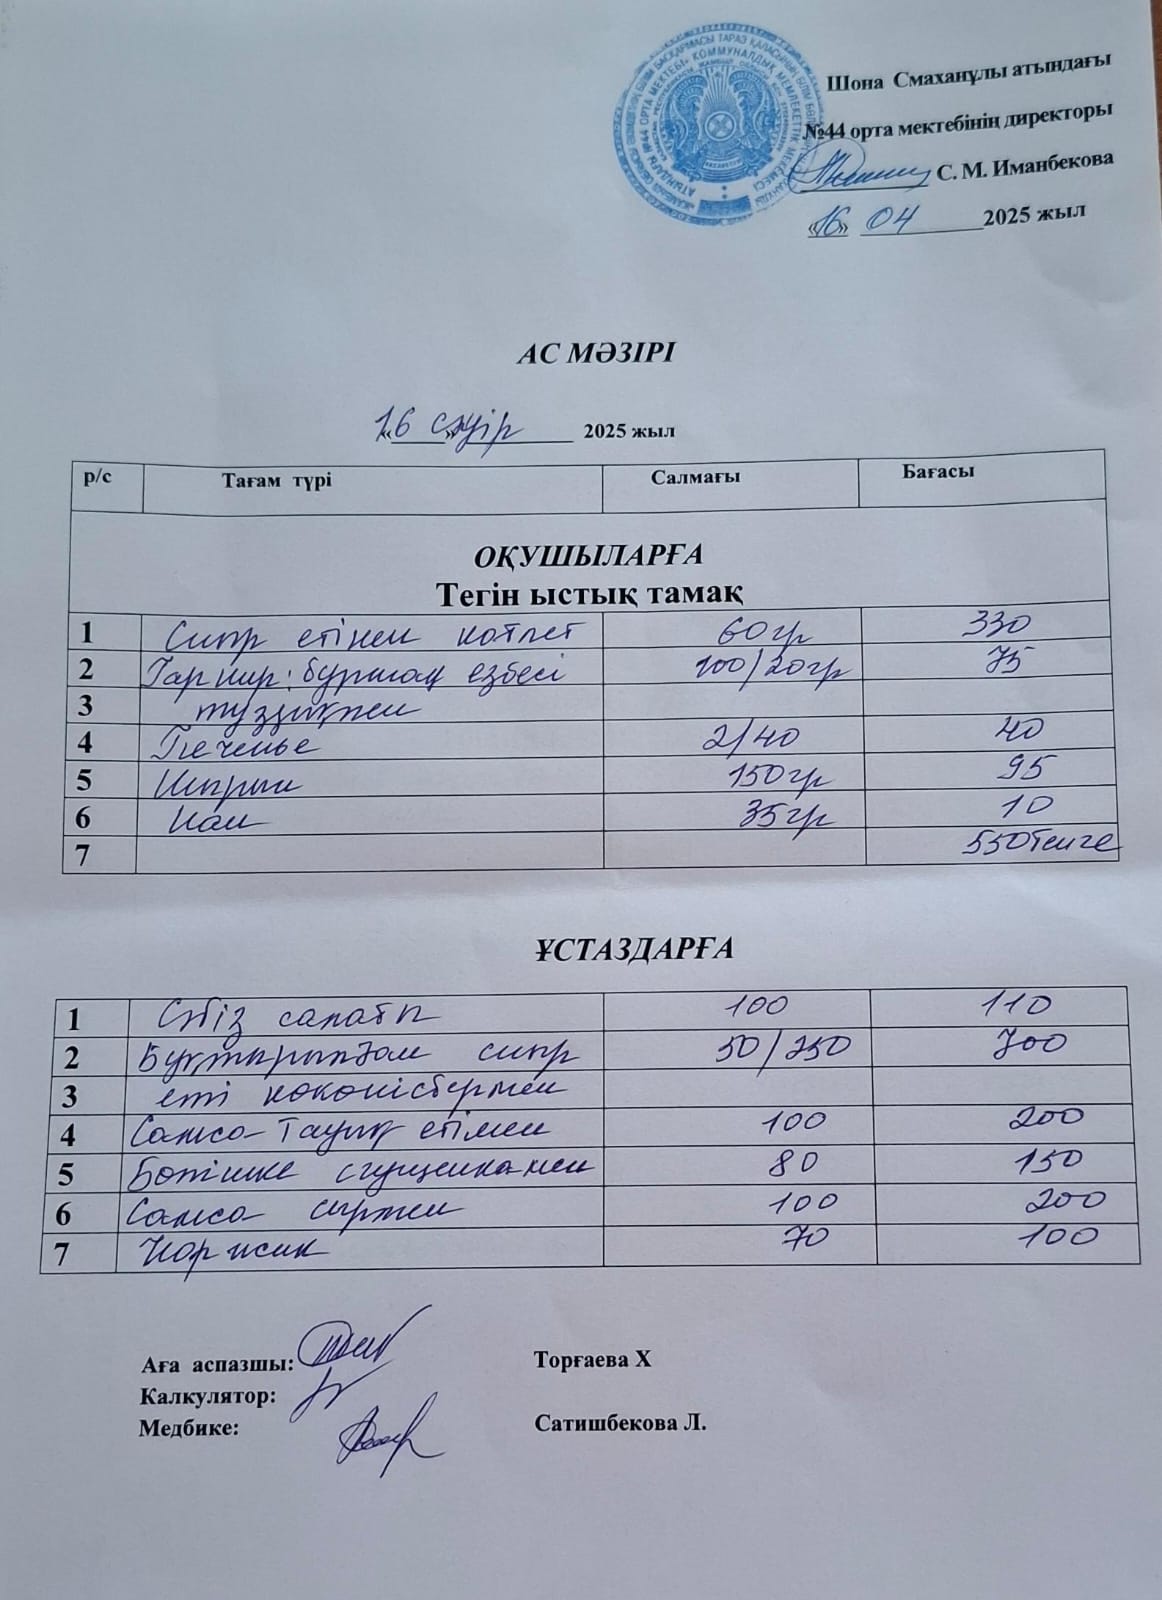 Шона Смаханұлы атындағы
№44 орта мектебінің директоры
С. М. Иманбекова
«16» 04 2025 жыл
АС МӘЗІРІ
«16» сәуір 2025 жыл
р/с Тағам түрі Салмағы Бағасы
ОҚУШЫЛАРҒА
Тегін ыстық тамақ
1 Сиыр етінен котлет 60гр 330
2 Гарнир: бұршақ езбесі 100/20гр 75
3 тұздықпен
4 Печенье 2/40 40
5 Шырын 150гр 95
6 Нан 35гр 10
7 550тенге
ҰСТАЗДАРҒА
1 Сәбіз салаты 100 110
2 Бұқтырылған сиыр 50/250 700
3 еті көкөністермен
4 Самса Тауық етімен 100 200
5 Бәтішке сгущенкамен 80 150
6 Самса сырмен 100 200
7 Коржик 70 100
Аға аспазшы: Торғаева Х
Калкулятор:
Медбике: Сатишбекова Л.